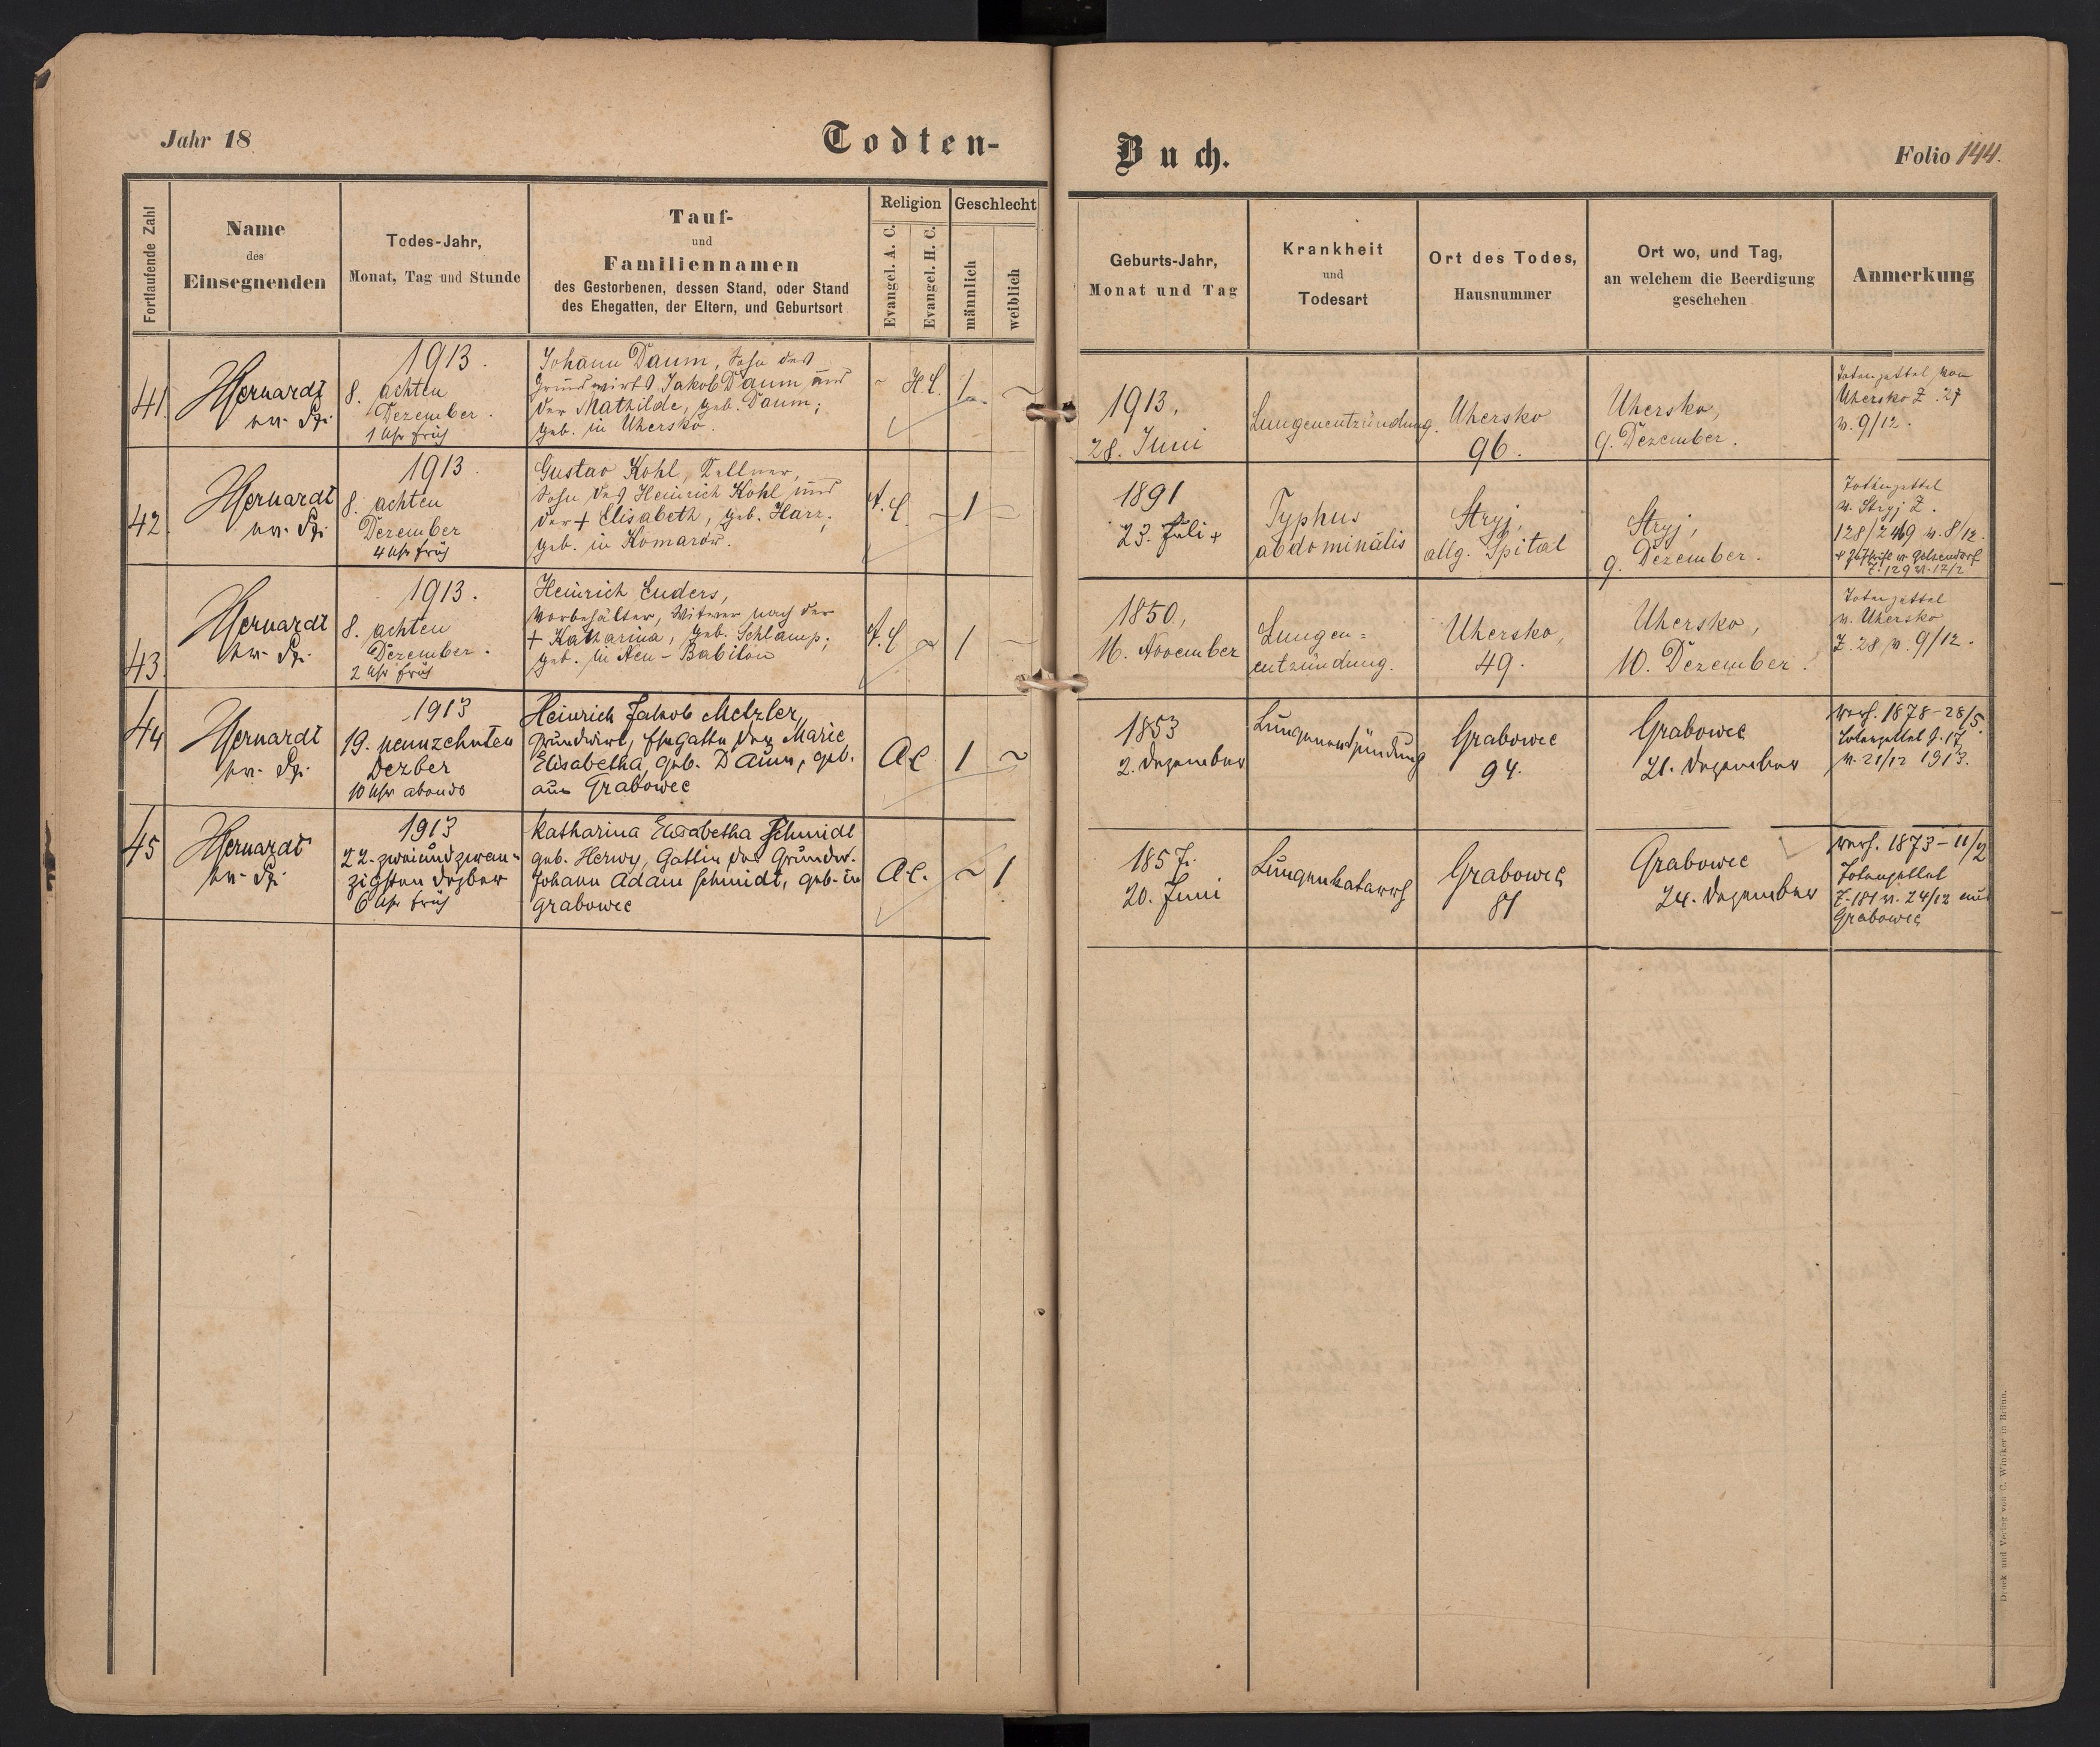 Jahr 18
Todten-
Buch.
Folio 144.
Fortlaufende Zahl
Name
des
Einsegnenden
Todes-Jahr,
Monat, Tag und Stunde
Tauf-
und
Familiennamen
des Gestorbenen, dessen Stand, oder Stand
des Ehegatten, der Eltern, und Geburtsort
Religion
Evangel. A. C.
Evangel. H. C.
Geschlecht
männlich
weiblich
Geburts-Jahr,
Monat und Tag
Krankheit
und
Todesart
Ort des Todes,
Hausnummer
Ort wo, und Tag,
an welchem die Beerdigung
geschehen
Anmerkung
41.
1913.
8. achten
Dezember.
1 Uhr früh
Johann Daum, Sohn des
Grundwirts Jakob Daum und
der Mathilde, geb. Daum;
geb. in Uhersko.
~ H.C. 1 ~
1913,
28. Juni
Lungenentzündung.
Uhersko
96.
Uhersko,
9. Dezember.
Totenzettel von
Uhersko Z. 27
v. 9/12.
42.
1913.
8. achten
Dezember
4 Uhr früh
Gustav Kohl, Kellner,
Sohn des Heinrich Kohl und
der + Elisabeth, geb. Harz;
geb. in Komarów.
A.C. ~ 1 ~
1891
23. Juli +
Typhus
abdominalis
Stryj,
allg. Spital
Stryj,
9. Dezember.
Totenzettel
v. Stryj Z.
128/2469 v. 8/12.
v. Gelsendorf
Z. 129 v. 17/2
43.
1913.
8. achten
Dezember.
2 Uhr früh
Heinrich Enders,
Vorbehälter, Witwer nach der
+ Katharina, geb. Schlamp;
geb. in Neu-Babilon
A.C. ~ 1 ~
1850,
16. November
Lungen=
entzündung.
Uhersko,
49.
Uhersko,
10. Dezember.
Totenzettel
v. Uhersko
Z. 28 v. 9/12.
44
1913
19. neunzehnten
Dezber
10 Uhr abends
Heinrich Jakob Metzler,
Grundwirt, Ehegatte der Marie
Elisabetha geb. Daum, geb.
aus Grabowec
AC 1 ~
1853
2. Dezember
Lungenentzündung
Grabowec
94.
Grabowec
21. Dezember
verh. 1878-28/5.
Totenzettel Z. 17
v. 21/12 1913.
45
1913
22. zweiundzwan-
zigsten Dezber
6 Uhr früh
Katharina Elisabetha Schmidt
geb. Herwy, Gattin des Grundw.
Johann Adam Schmidt, geb. in
Grabowec
A.C. ~ 1
1857.
20. Juni
Lungenkatarrh
Grabowec
81
Grabowec
24. Dezember
verh. 1873-11/2
Totenzettel
Z. 181 v. 24/12 aus
Grabowec
Druck und Verlag von C. Winiker in Brünn.